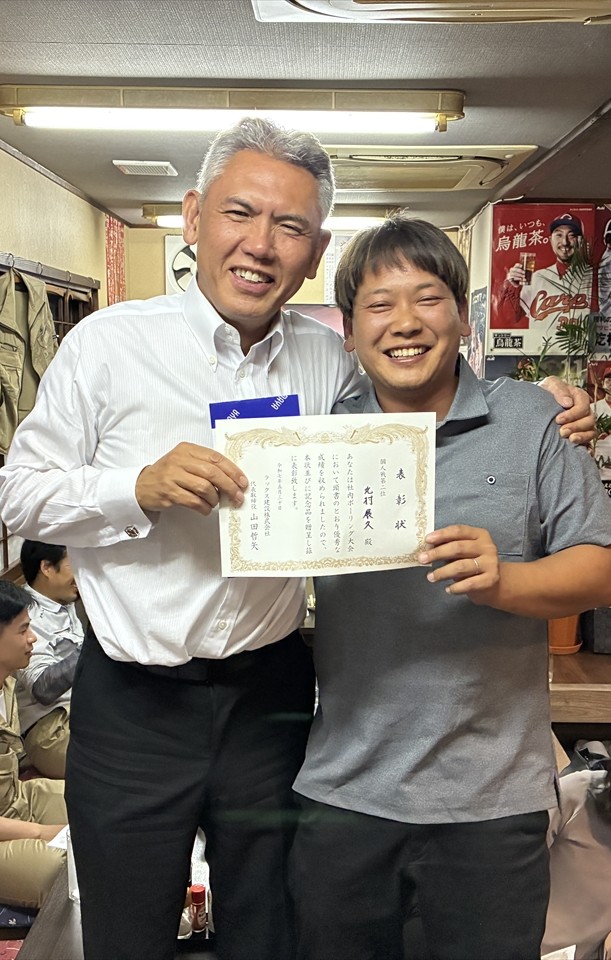 表彰状
個人戦第二位
光村展久 殿
あなたは社内ボーリング大会
において頭書のとおり優秀な
成績を収められましたので、
本状並びに記念品を贈呈し茲
に表彰致します。
テックスエ建設株式会社
代表取締役 山田哲矢
僕は、いつも。
烏龍茶。
Carp
烏龍茶